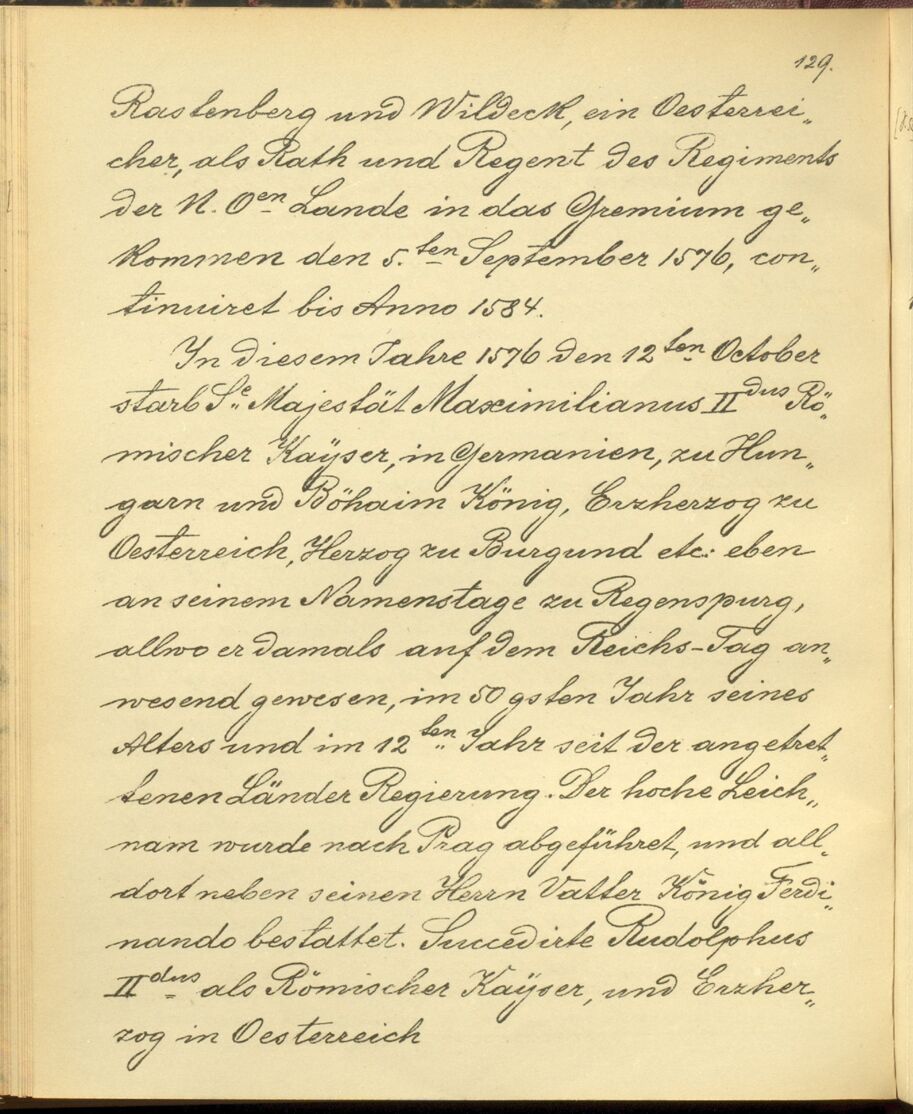 129.
Rastenberg und Wildeck, ein Oesterrei„
cher, als Rath und Regent des Regiments
der N. Oen Lande in das Gremium ge„
kommen den 5.ten September 1576, con„
tinuiret bis Anno 1584.
In diesem Jahre 1576 den 12ten October
starb Se Majestät Maximilianus IIdus Rö„
mischer Kaÿser, in Germanien, zu Hun„
garn und Böhaim König, Erzherzog zu
Oesterreich, Herzog zu Burgund etc: eben
an seinem Namenstage zu Regenspurg,
allwo er damals auf dem Reichs-Tag an„
wesend gewesen, im 50gsten Jahr seines
Alters und im 12ten Jahr seit der angetret„
tenen Länder Regierung. Der hoche Leich„
nam wurde nach Prag abgeführet, und all„
dort neben seinen Herrn Vatter König Ferdi„
nando bestattet. Succedirte Rudolphus
IIdus als Römischer Kaÿser, und Erzher„
zog in Oesterreich